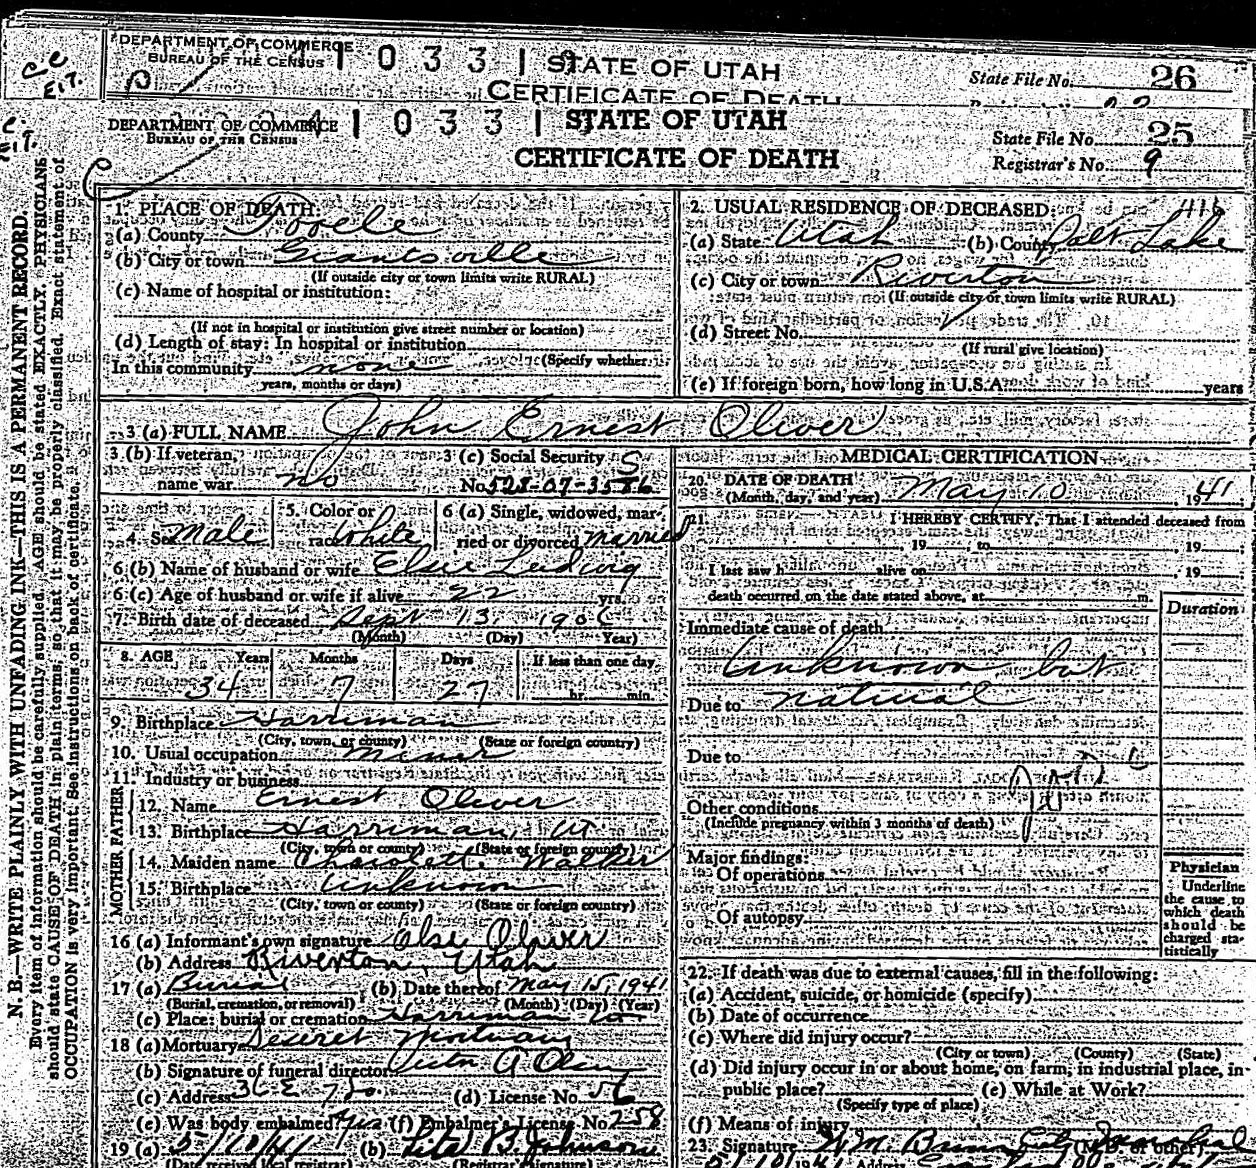 CC
E.T.
DEPARTMENT OF COMMERCE
BUREAU OF THE CENSUS
1033
STATE OF UTAH
CERTIFICATE OF DEATH
State File No. 26
DEPARTMENT OF COMMERCE
BUREAU OF THE CENSUS
1033
STATE OF UTAH
CERTIFICATE OF DEATH
State File No. 25
Registrar's No. 9
N. B.—WRITE PLAINLY WITH UNFADING INK—THIS IS A PERMANENT RECORD.
Every item of information should be carefully supplied. AGE should be stated EXACTLY. PHYSICIANS
should state CAUSE OF DEATH in plain terms, so that it may be properly classified. Exact statement of
OCCUPATION is very important. See instructions on back of certificate.
1. PLACE OF DEATH:
(a) County Tooele
(b) City or town Grantsville
(If outside city or town limits write RURAL)
(c) Name of hospital or institution:
(If not in hospital or institution give street number or location)
(d) Length of stay: In hospital or institution
(Specify whether
In this community none
years, months or days)
2. USUAL RESIDENCE OF DECEASED:
(a) State Utah (b) County Salt Lake
(c) City or town Riverton
(If outside city or town limits write RURAL)
(d) Street No.
(If rural give location)
(e) If foreign born, how long in U.S.A. years
3 (a) FULL NAME John Ernest Oliver
3 (b) If veteran, name war no
3 (c) Social Security No. 528-07-3586
4. Sex Male
5. Color or race White
6 (a) Single, widowed, married or divorced married
6 (b) Name of husband or wife Elsie Ludwig
6 (c) Age of husband or wife if alive 22 yrs.
7. Birth date of deceased Sept 13, 1906
(Month) (Day) Year)
8. AGE Years Months Days If less than one day
34 7 27 hr. min.
9. Birthplace Harriman
(City, town, or county) (State or foreign country)
10. Usual occupation Miner
11. Industry or business
FATHER
12. Name Ernest Oliver
13. Birthplace Harriman, Ut
(City, town or county) (State or foreign country)
MOTHER
14. Maiden name Walker
15. Birthplace Unknown
(City, town or county) (State or foreign country)
16 (a) Informant's own signature Oliver
(b) Address Riverton, Utah
17 (a) Burial (b) Date thereof May 15, 1941
(Burial, cremation, or removal) (Month) (Day) (Year)
(c) Place: burial or cremation Harriman
18 (a) Mortuary Deseret Mortuary
(b) Signature of funeral director
(c) Address 36 E 7 So. (d) License No. 56
(e) Was body embalmed? yes (f) Embalmer's License No. 258
19 (a) 5/10/41 (b) B. Johnson
(Date received local registrar) (Registrar's signature)
MEDICAL CERTIFICATION
20. DATE OF DEATH
(Month, day, and year) May 10 1941
21. I HEREBY CERTIFY, That I attended deceased from
, 19 , to , 19
I last saw h alive on , 19
death occurred on the date stated above, at m.
Duration
Immediate cause of death
Unknown but
Due to natural
Due to
Other conditions
(Include pregnancy within 3 months of death)
Major findings:
Of operations
Of autopsy
Physician
Underline the cause to which death should be charged statistically
22. If death was due to external causes, fill in the following:
(a) Accident, suicide, or homicide (specify)
(b) Date of occurrence
(c) Where did injury occur?
(City or town) (County) (State)
(d) Did injury occur in or about home, on farm, in industrial place, in
public place? (e) While at Work?
(Specify type of place)
(f) Means of injury
23. Signature Wm. (M.D. or other)
5/10 1941 Address